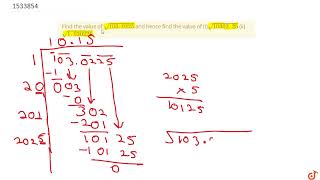 1533854
Find the value of √103.0225 and hence find the value of
10.15
1 103.0225
-1
20 003
302
201 -201
2025 101 25
-101 25
0
2025
× 5
10125
√103.